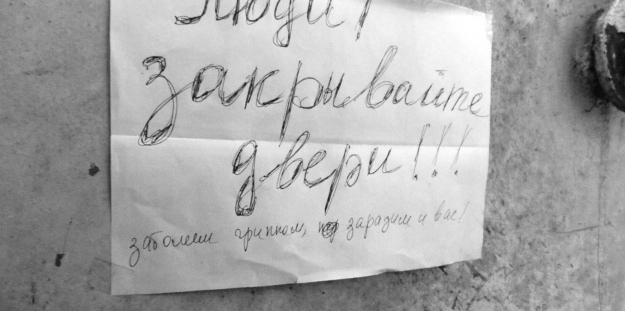 Люди!
закрывайте
двери!!!
заболеем гриппом, заразим и вас!